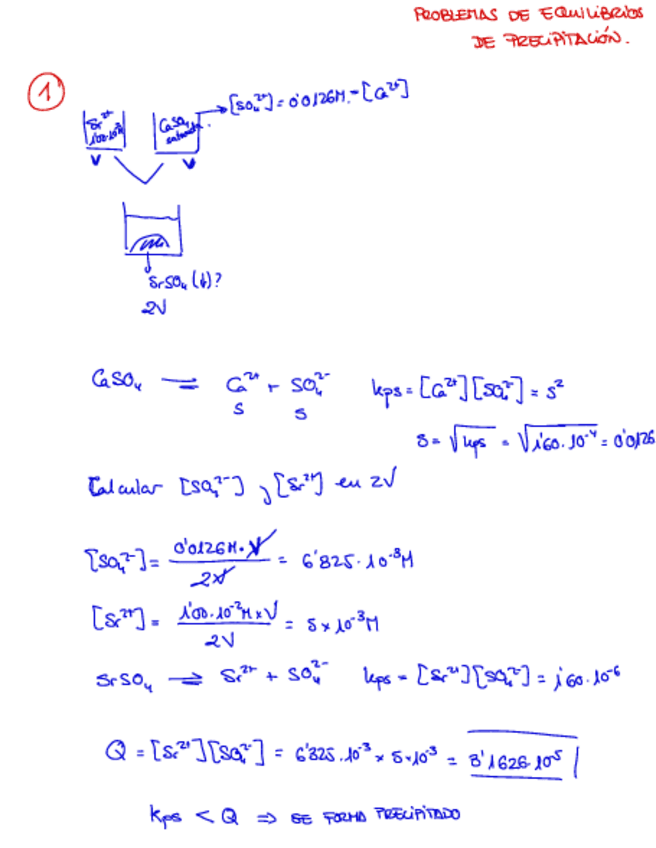 PROBLEMAS DE EQUILIBRIOS
DE PRECIPITACIÓN.
1
Sr²⁺
1'00·10⁻²M
CaSO₄
saturada
[SO₄²⁻] = 0'0126M = [Ca²⁺]
V
V
SrSO₄ (↓)?
2V
CaSO₄ ⇌ Ca²⁺ + SO₄²⁻ kps = [Ca²⁺][SO₄²⁻] = s²
s s
s = √kps = √1'60·10⁻⁴ = 0'0126
Calcular [SO₄²⁻] y [Sr²⁺] en 2V
[SO₄²⁻] = 0'0126M·V / 2V = 6'325·10⁻³M
[Sr²⁺] = 1'00·10⁻²M×V / 2V = 5×10⁻³M
SrSO₄ ⇌ Sr²⁺ + SO₄²⁻ kps = [Sr²⁺][SO₄²⁻] = 1'60·10⁻⁶
Q = [Sr²⁺][SO₄²⁻] = 6'325·10⁻³ × 5·10⁻³ = 3'1626·10⁻⁵
kps < Q ⇒ SE FORMA PRECIPITADO